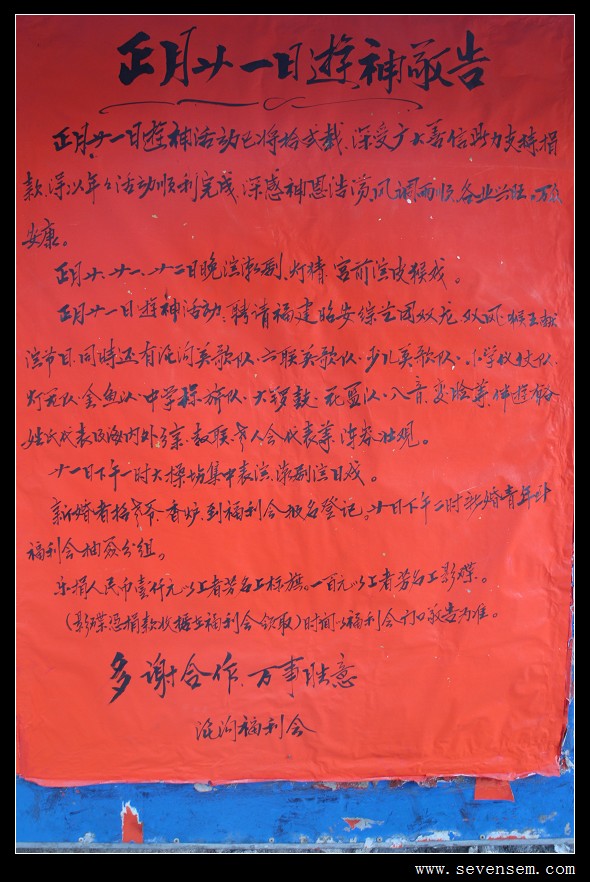 正月廿一日遊神敬告
正月廿一日遊神活动已将格式裁、深受广大善信鼎力支持捐
款、得以年々活动顺利完成、深感神恩浩荡、风调雨顺、各业兴旺、万众
安康。
正月廿、廿一、廿二日晚演潮剧、灯猜、宫前演皮猴戏。
正月廿一日遊神活动、聘请福建昭安综艺团双龙、双凤、猴王献
演节目、同时还有 英歌队、六联英歌队、少儿英歌队、小学仪仗队、
灯 队、金鱼队、中学标旗队、大锣鼓、 队、八音、变脸等、伴遊
姓氏代表及海内外 、老人会代表等、阵容壮观。
廿一日下午一时大操场集中表演、潮剧演日戏。
新婚者抬老爷、香炉、到福利会报名登记。廿日下午二时新婚青年
福利会抽 分组。
乐捐人民币壹仟元以上者芳名上标旗。一百元以上者芳名上影蝶。
(影蝶凭捐款收据去福利会领取)时间以福利会门口敬告为准。
多谢合作、万事胜意
福利会
www.sevensem.com